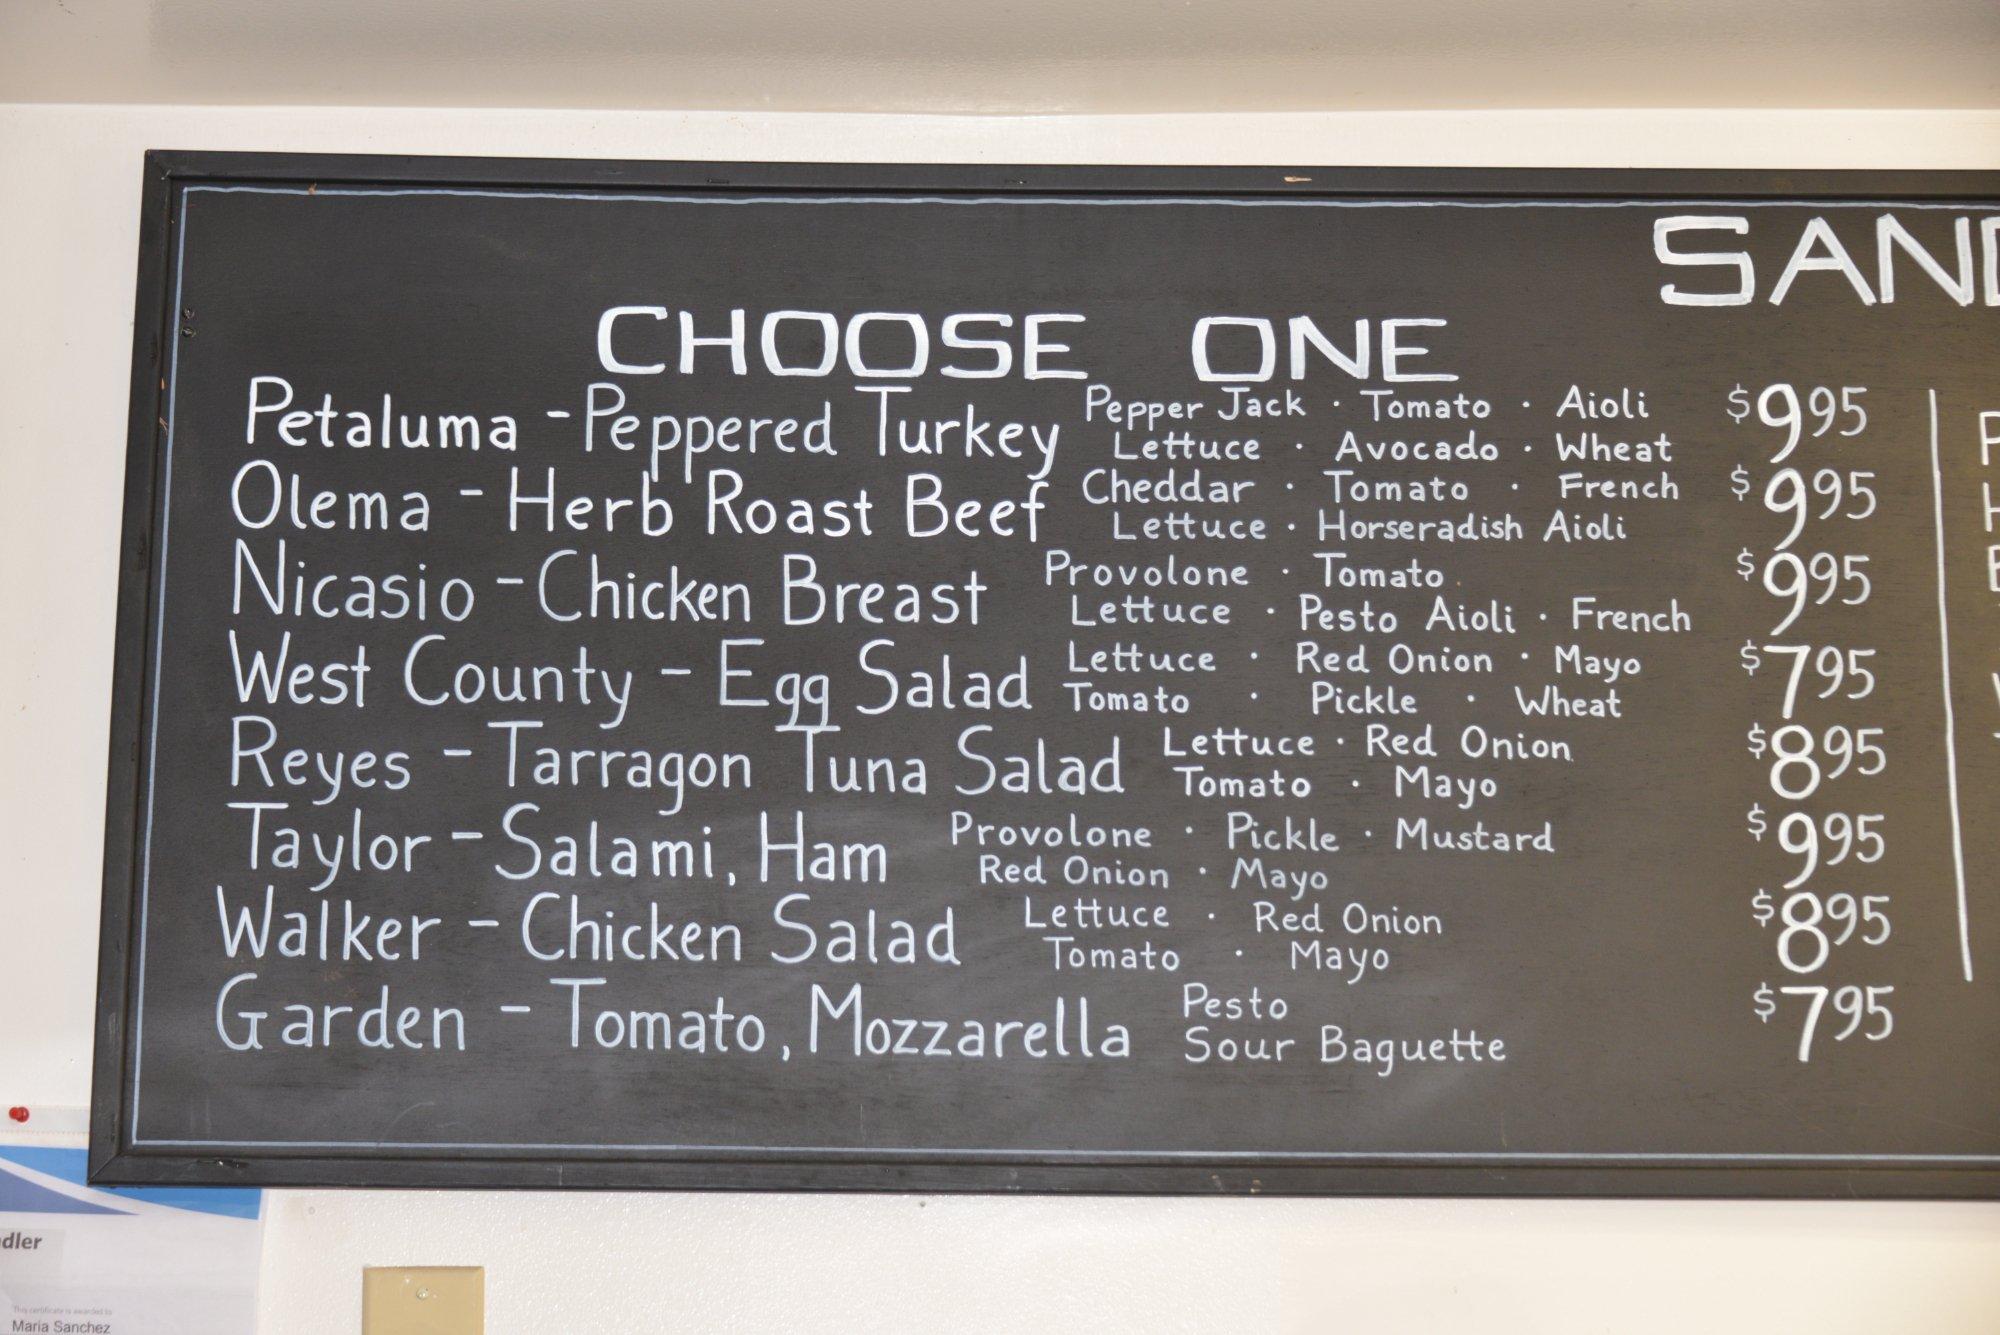 SAND
CHOOSE ONE
Petaluma - Peppered Turkey Pepper Jack · Tomato · Aioli $9 95
Lettuce · Avocado · Wheat
Olema - Herb Roast Beef Cheddar · Tomato · French $9 95
Lettuce · Horseradish Aioli
Nicasio - Chicken Breast Provolone · Tomato $9 95
Lettuce · Pesto Aioli · French
West County - Egg Salad Lettuce · Red Onion · Mayo $7 95
Tomato · Pickle · Wheat
Reyes - Tarragon Tuna Salad Lettuce · Red Onion $8 95
Tomato · Mayo
Taylor - Salami, Ham Provolone · Pickle · Mustard $9 95
Red Onion · Mayo
Walker - Chicken Salad Lettuce · Red Onion $8 95
Tomato · Mayo
Garden - Tomato, Mozzarella Pesto $7 95
Sour Baguette
dler
This certificate is awarded to
Maria Sanchez